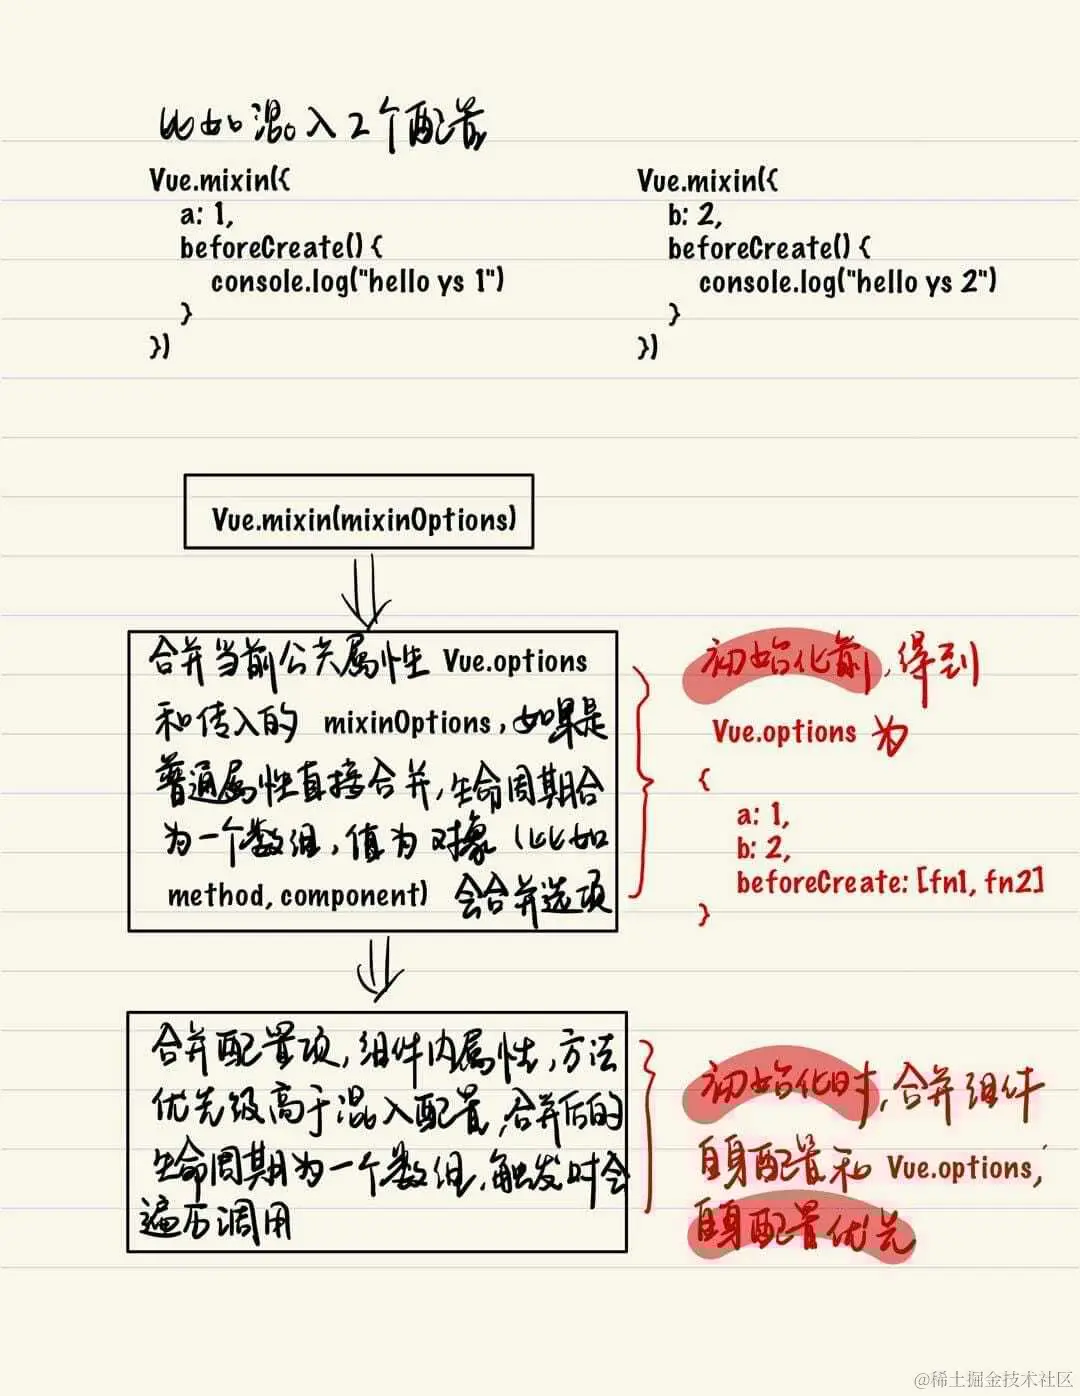 比如混入2个配置
Vue.mixin({
a: 1,
beforeCreate() {
console.log("hello ys 1")
}
})
Vue.mixin({
b: 2,
beforeCreate() {
console.log("hello ys 2")
}
})
Vue.mixin(mixinOptions)
合并当前公共属性 Vue.options
和传入的 mixinOptions,如果是
普通属性直接合并,生命周期合
为一个数组,值为对象(比如
method, component) 会合并选项
初始化前,得到
Vue.options 为
{
a: 1,
b: 2,
beforeCreate: [fn1, fn2]
}
合并配置项,组件内属性,方法
优先级高于混入配置,合并后的
生命周期为一个数组,触发时会
遍历调用
初始化时,合并组件
自身配置和 Vue.options,
自身配置优先
@稀土掘金技术社区